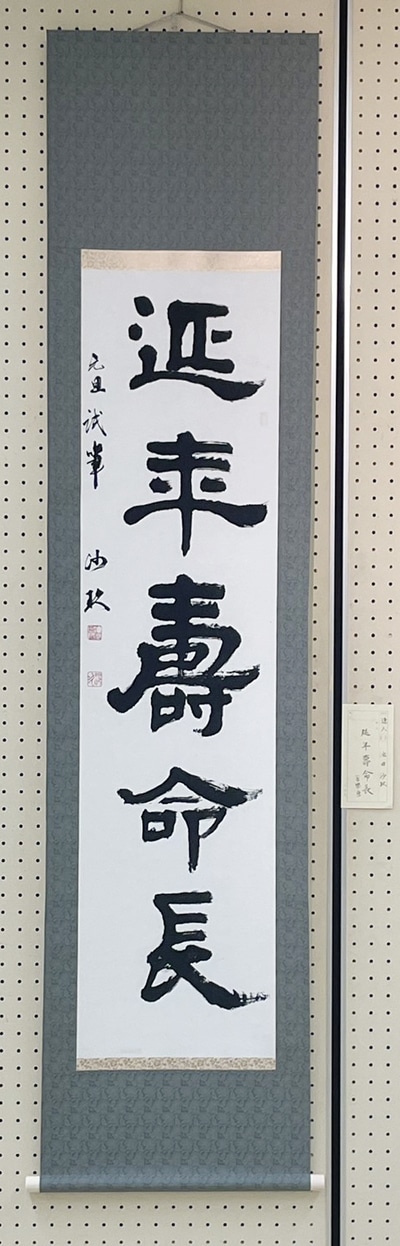 延年壽命長
元旦試筆 沙玖
延年壽命長